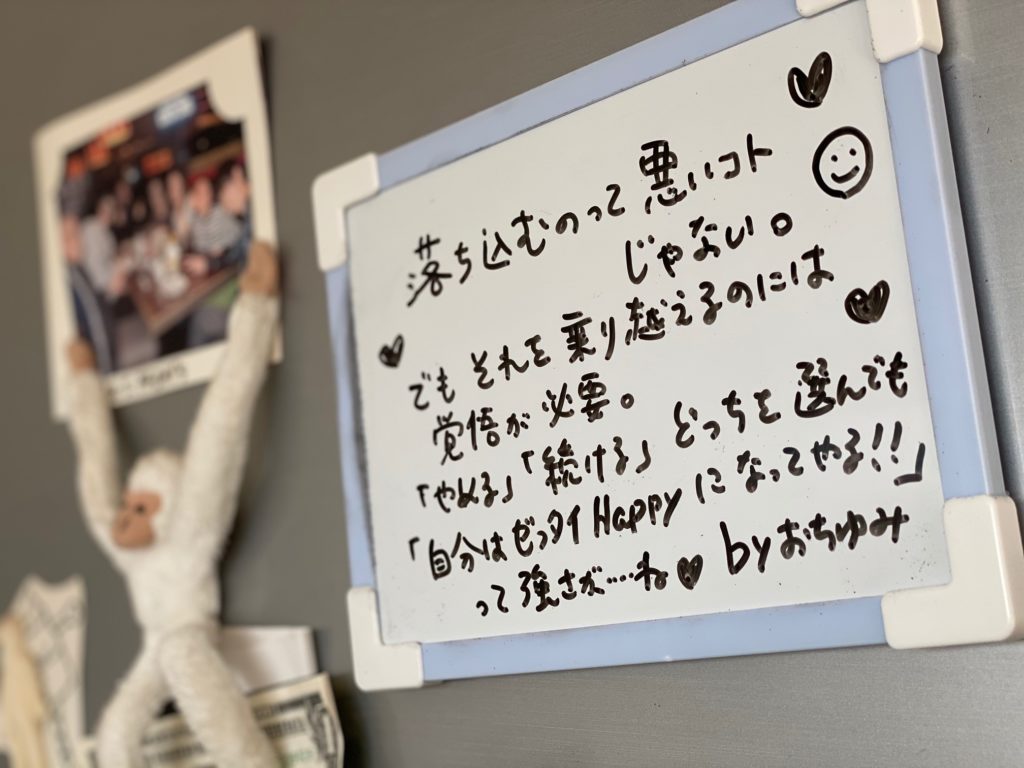 落ち込むのって悪いコト
じゃない。
でも それを乗り越えるのには
覚悟が必要。
「やめる」「続ける」 どっちを選んでも
「自分はゼッタイHappyになってやる!!」
って強さが…ね♥ byおちゆみ